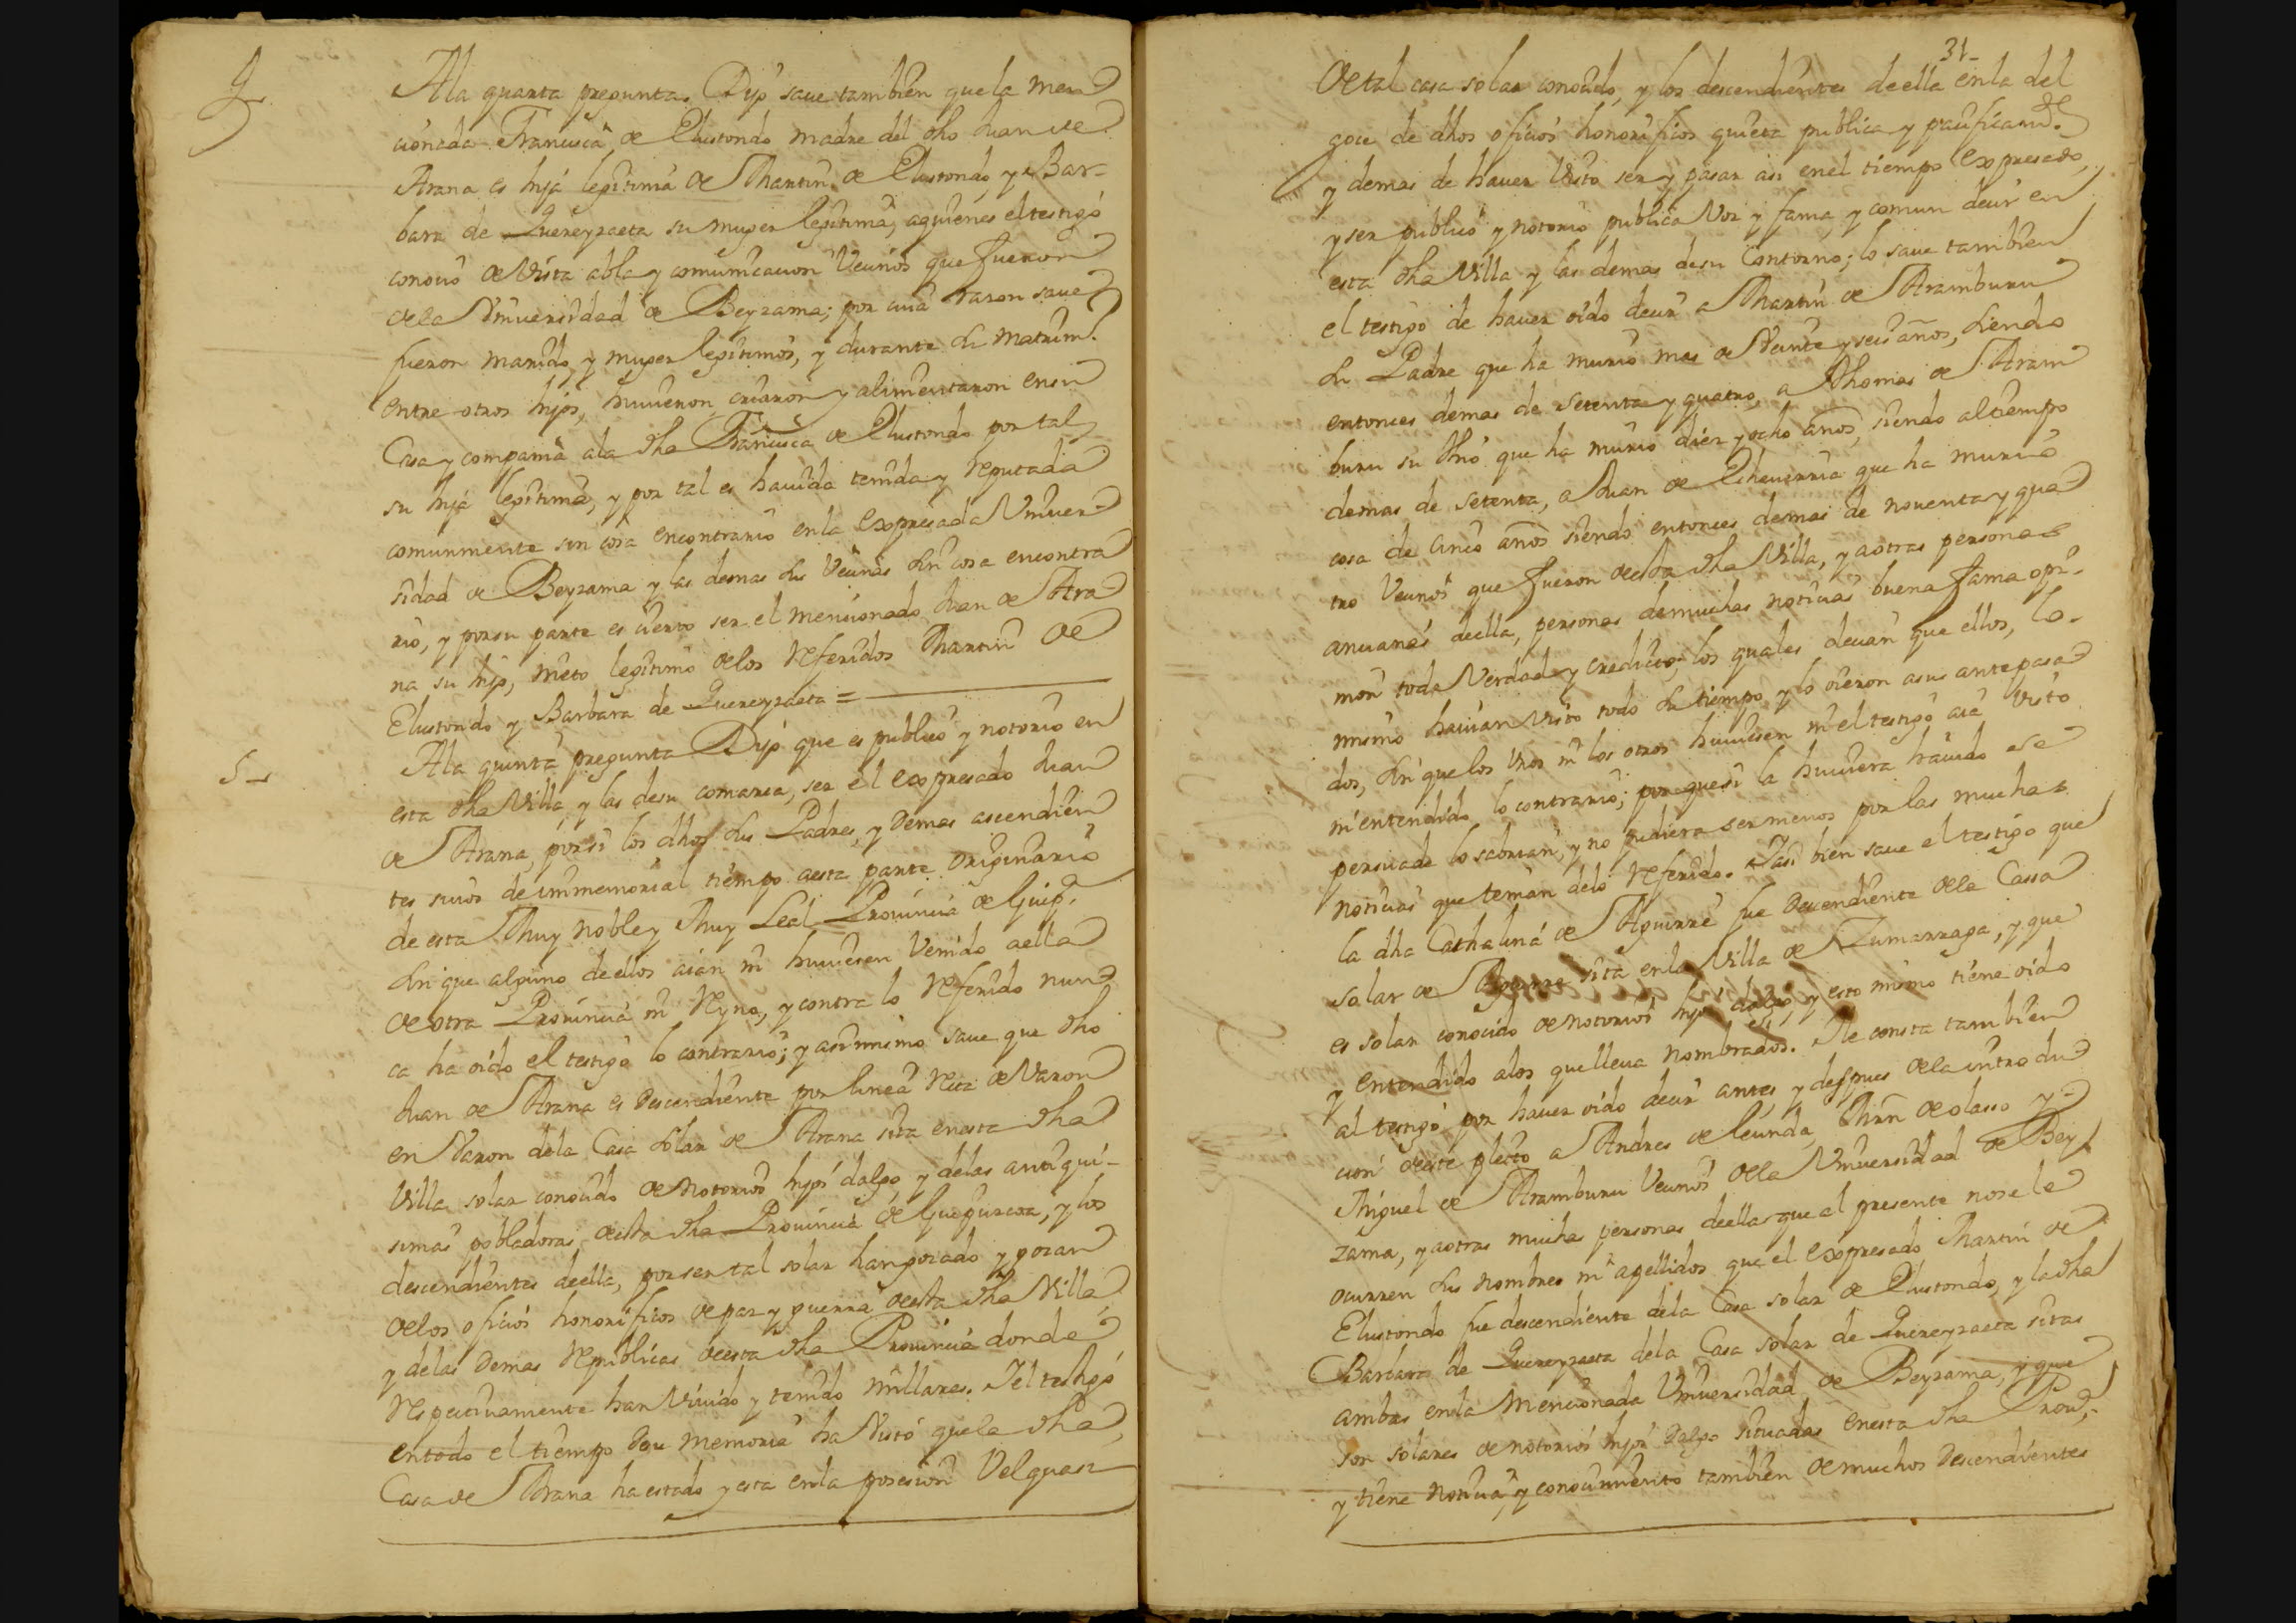 4
A la quarta pregunta. Dijo saue tambien que la men
cionada Francisca de Elustondo madre del dho Juan de
Arana es hija legitima de Martin de Elustondo y Bar-
bara de Quereyzaeta su muger legitima, aquienes el testigo
conocio de Vista abla y comunicacion Vecinos que fueron
dela Vniuersidad de Beyzama; por cuia razon saue
fueron marido y muger legitimos, y durante su matrim.º
entre otros hijos, huuieron criaron y alimentaron ensu
Casa y compania ala dha Francisca de Elustondo por tal
su hija legitima, y por tal es hauida tenida y reputada
comunmente sin cosa encontrario enla expresada Vniuer
sidad de Beyzama y las demas sus Vecinas sin cosa encontra
rio, y porsu parte es cierto ser el mencionado Juan de Ara
na su hijo, nieto legitimo delos referidos Martin de
Elustondo y Barbara de Quereyzaeta =
5
A la quinta pregunta Dijo que es publico y notorio en
esta dha Villa y las desu comarca, ser el expresado Juan
de Arana, por si los dhos sus Padres, y demas ascendien
tes suios de immemorial tiempo aesta parte originario
de esta Muy noble y Muy Leal Prouincia de Guip.ª
sin que alguno deellos aian ni huuiesen Venido aella
de otra Prouincia ni Reyno, y contra lo referido nun
ca ha oido el testigo lo contrario; y asimismo saue que dho
Juan de Arana es descendiente por linea recta de Varon
en Varon dela Casa solar de Arana sita enesta dha
Villa solar conocido de notorios hijos dalgo y delas antiqui-
simas pobladoras deesta dha Prouincia de Guipuzcoa, y los
descendientes deella, por ser tal solar han gozado y gozan
delos oficios honorificos de paz y guerra deesta dha Villa,
y delas demas republicas deesta dha Prouincia donde
respectiuamente han Viuido y tenido millares. Y el testigo
entodo el tiempo desu memoria ha Visto quela dha
Casa de Arana ha estado y esta enla posesion Vel quasi
31
de tal casa solar conocido, y los descendientes deella enla del
goce de dhos oficios honorificos quieta publica y pacificam.te
y demas de hauer Visto ser y pasar asi enel tiempo expresado,
y ser publico y notorio publica Voz y fama y comun decir en
esta dha Villa y las demas desu Contorno; lo saue tambien
el testigo de hauer oido decir a Martin de Aramburu
su Padre que ha murio mas de Veinte y seis años, siendo
entonces demas de setenta y quatro, a Thomas de Aram
buru su thio que ha murio diez y ocho años, siendo altiempo
demas de setenta, a Juan de Echeuerria que ha murio
cosa de cinco años siendo entonces demas de nouenta y qua
tro Vecinos que fueron deesta dha Villa, y aotras personas
ancianas deella, personas demuchas noticias buena fama opi-
nion toda Verdad y credicto, los quales decian que ellos, lo-
mismo hauian Visto todo su tiempo, y lo oieron asus antepasa
dos, sin que los Vnos ni los otros huuiesen ni el testigo aia Visto
ni entendido lo contrario; por que si la huuiera hauido se
persuade lo sabrian, y no pudiera ser menos por las muchas
noticias que tenian delo referido. Y asi bien saue el testigo que
la dha Cathalina de Aguirre fue descendiente dela Cassa
solar de Aguirre sita enla Villa de Zumarraga, y que
es solar conocido de notorios hijos dalgo, y esto mismo tiene oido
y entendido alos que lleua nombrados. Y le consta tambien
al testigo por hauer oido decir antes y despues dela introdu
cion deeste pleito a Andres de Ceunda, Mrn de olasso y
Miguel de Aramburu Vecinos dela Vniuersidad de Bey
zama, y aotras muchas personas deella que al presente nosele
ocurren sus nombres ni apellidos que el expresado Martin de
Elustondo fue descendiente dela Casa solar de Elustondo, y la dha
Barbara de Quereyzaeta dela Casa solar de Quereyzaeta sitas
ambas enla mencionada Vniuersidad de Beyzama, y que
son solares de notorios hijos dalgo situadas enesta dha Prou.ª
y tiene noticia, y conocimiento tambien de muchos descendientes